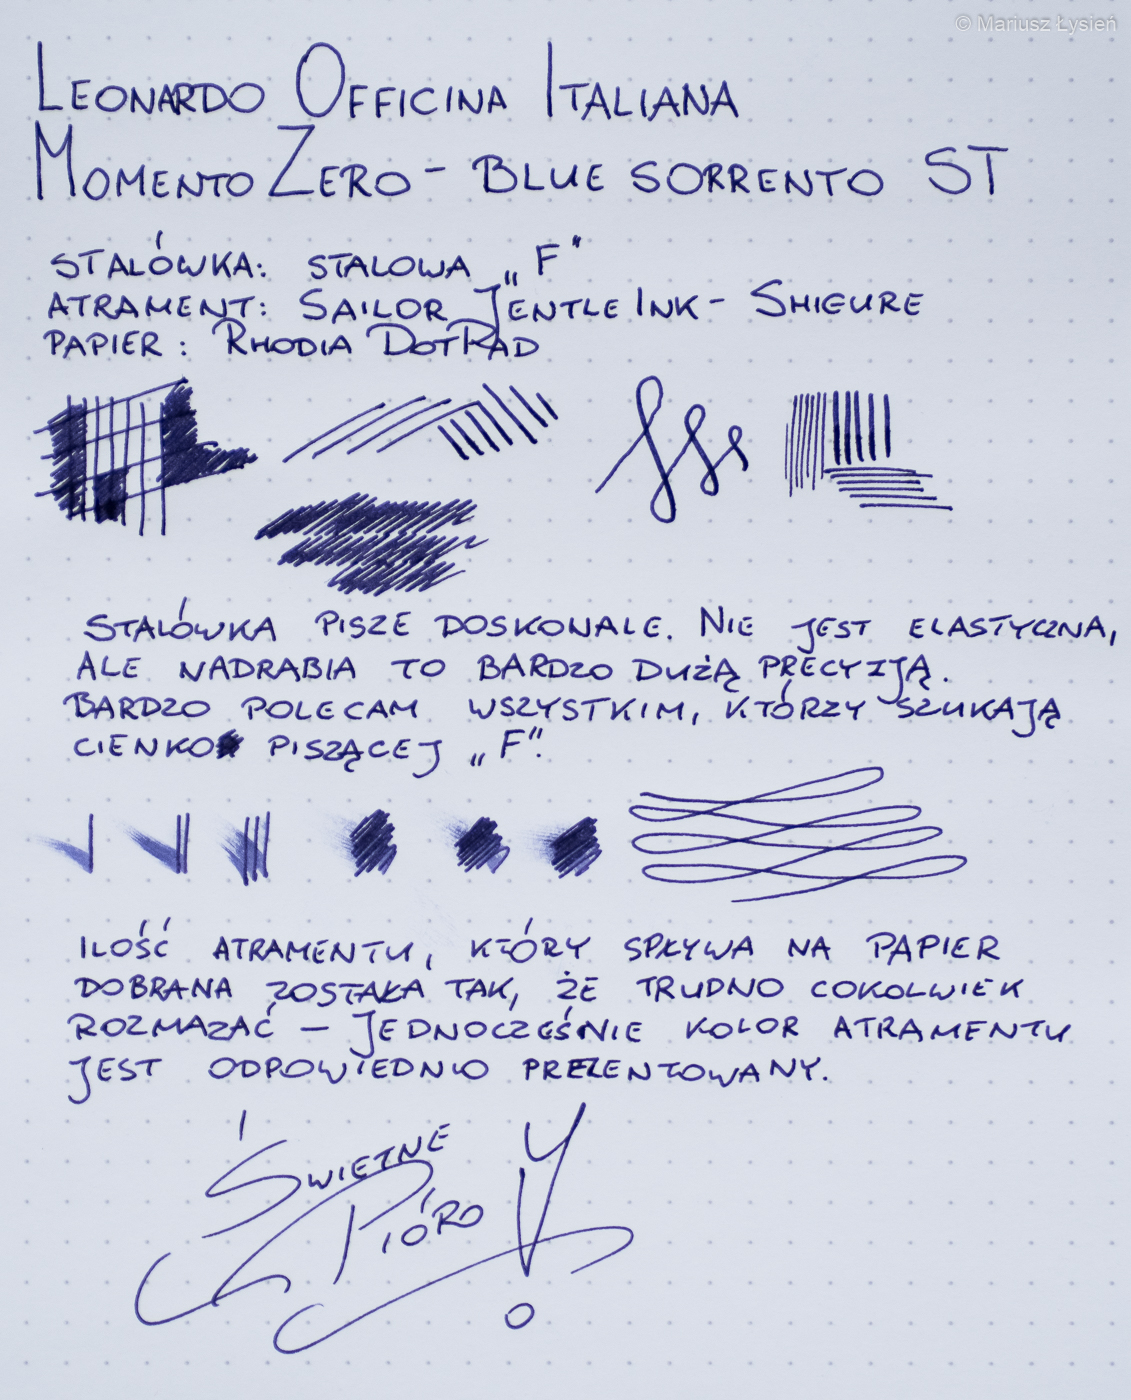 © Mariusz Łysień
LEONARDO OFFICINA ITALIANA
MOMENTO ZERO - BLUE SORRENTO ST
STALÓWKA: STALOWA „F”
ATRAMENT: SAILOR JENTLE INK - SHIGURE
PAPIER: RHODIA DOTPAD
STALÓWKA PISZE DOSKONALE. NIE JEST ELASTYCZNA,
ALE NADRABIA TO BARDZO DUŻĄ PRECYZJĄ.
BARDZO POLECAM WSZYSTKIM, KTÓRZY SZUKAJĄ
CIENKO PISZĄCEJ „F”.
ILOŚĆ ATRAMENTU, KTÓRY SPŁYWA NA PAPIER
DOBRANA ZOSTAŁA TAK, ŻE TRUDNO COKOLWIEK
ROZMAZAĆ – JEDNOCZEŚNIE KOLOR ATRAMENTU
JEST ODPOWIEDNIO PREZENTOWANY.
ŚWIETNE
PIÓRO!